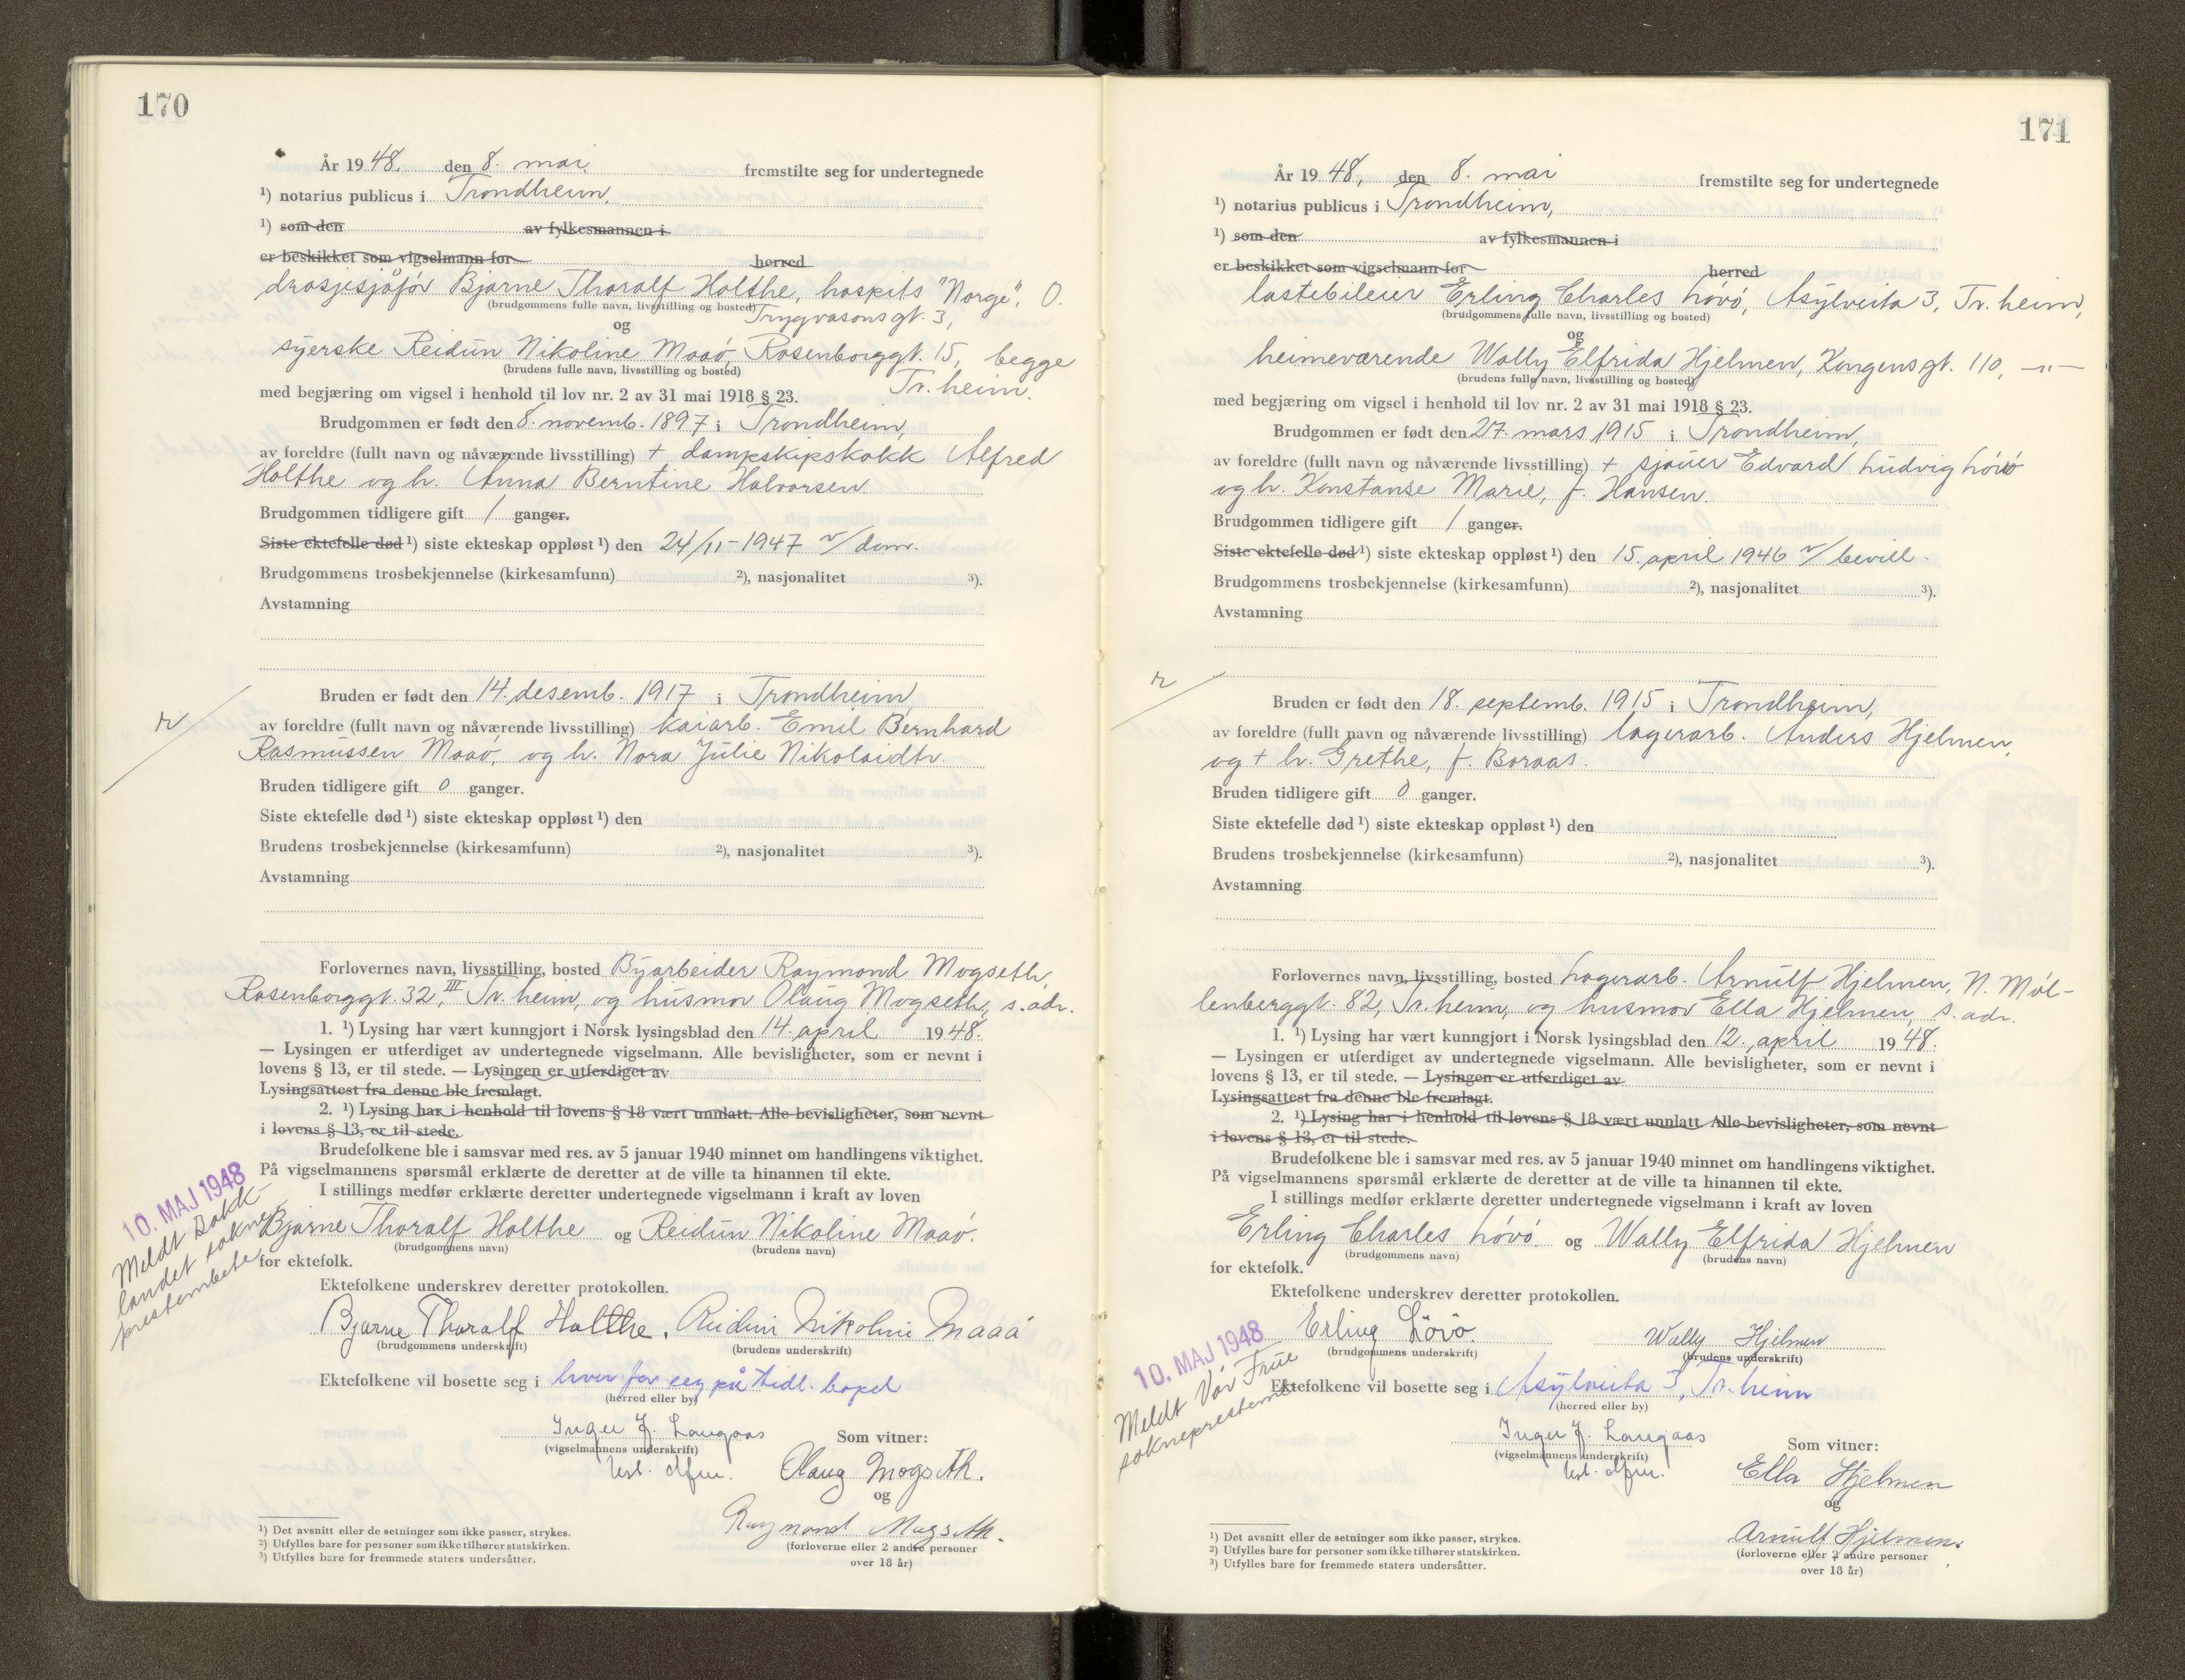 170
År 1948. den 8. mai. fremstilte seg for undertegnede
¹) notarius publicus i Trondheim,
¹) som den av fylkesmannen i
er beskikket som vigselmann for herred
drosjesjåfør Bjarne Thoralf Holthe, hospits "Norge", O.
(brudgommens fulle navn, livsstilling og bosted) Trygvasonsgt. 3,
og
syerske Reidun Nikoline Maaø, Rosenborggt. 15, begge
(brudens fulle navn, livsstilling og bosted) Tr.heim.
med begjæring om vigsel i henhold til lov nr. 2 av 31 mai 1918 § 23.
Brudgommen er født den 8. novemb. 1897 i Trondheim,
av foreldre (fullt navn og nåværende livsstilling) + dampskipskokk Alfred
Holthe og h. Anna Berntine Halvorsen.
Brudgommen tidligere gift 1 ganger.
Siste ektefelle død ¹) siste ekteskap oppløst ¹) den 24/11-1947 v/dom.
Brudgommens trosbekjennelse (kirkesamfunn) ²), nasjonalitet ³).
Avstamning
Bruden er født den 14. desemb. 1917 i Trondheim,
av foreldre (fullt navn og nåværende livsstilling) kaiarb. Emil Bernhard
Rasmussen Maaø, og h. Nora Julie Nikolaidtr.
Bruden tidligere gift 0 ganger.
Siste ektefelle død ¹) siste ekteskap oppløst ¹) den
Brudens trosbekjennelse (kirkesamfunn) ²), nasjonalitet ³).
Avstamning
Forlovernes navn, livsstilling, bosted Byarbeider Raymond Mogseth,
Rosenborggt. 32, III Tr.heim, og husmor Olaug Mogseth, s.adr.
1. ¹) Lysing har vært kunngjort i Norsk lysingsblad den 14. april 1948.
— Lysingen er utferdiget av undertegnede vigselmann. Alle bevisligheter, som er nevnt i
lovens § 13, er til stede. — Lysingen er utferdiget av
Lysingsattest fra denne ble fremlagt.
2. ¹) Lysing har i henhold til lovens § 18 vært unnlatt. Alle bevisligheter, som nevnt
i lovens § 13, er til stede.
Brudefolkene ble i samsvar med res. av 5 januar 1940 minnet om handlingens viktighet.
På vigselmannens spørsmål erklærte de deretter at de ville ta hinannen til ekte.
I stillings medfør erklærte deretter undertegnede vigselmann i kraft av loven
Bjarne Thoralf Holthe og Reidun Nikoline Maaø.
(brudgommens navn) (brudens navn)
for ektefolk.
10. MAJ 1948
Meldt Bakk-
landet sokne-
prestembete
Ektefolkene underskrev deretter protokollen.
Bjarne Thoralf Holthe. Reidun Nikoline Maaø
(brudgommens underskrift) (brudens underskrift)
Ektefolkene vil bosette seg i hver for seg på tidl. bopel
(herred eller by)
Inger J. Langaas
(vigselmannens underskrift) Som vitner:
Olaug Mogseth.
og
Raymond Mogseth.
(forloverne eller 2 andre personer
over 18 år)
¹) Det avsnitt eller de setninger som ikke passer, strykes.
²) Utfylles bare for personer som ikke tilhører statskirken.
³) Utfylles bare for fremmede staters undersåtter.
171
År 1948, den 8. mai fremstilte seg for undertegnede
¹) notarius publicus i Trondheim,
¹) som den av fylkesmannen i
er beskikket som vigselmann for herred
lastebileier Erling Charles Løvø, Asylveita 3, Tr.heim,
(brudgommens fulle navn, livsstilling og bosted)
og
heimeværende Wally Elfrida Hjelmen, Kongensgt. 110, —"—
(brudens fulle navn, livsstilling og bosted)
med begjæring om vigsel i henhold til lov nr. 2 av 31 mai 1918 § 23.
Brudgommen er født den 27. mars 1915 i Trondheim,
av foreldre (fullt navn og nåværende livsstilling) + sjauer Edvard Ludvig Løvø
og h. Konstanse Marie, f. Hansen.
Brudgommen tidligere gift 1 ganger.
Siste ektefelle død ¹) siste ekteskap oppløst ¹) den 15. april 1946 v/bevill.
Brudgommens trosbekjennelse (kirkesamfunn) ²), nasjonalitet ³).
Avstamning
Bruden er født den 18. septemb. 1915 i Trondheim,
av foreldre (fullt navn og nåværende livsstilling) lagerarb. Anders Hjelmen,
og + h. Grethe, f. Boraas.
Bruden tidligere gift 0 ganger.
Siste ektefelle død ¹) siste ekteskap oppløst ¹) den
Brudens trosbekjennelse (kirkesamfunn) ²), nasjonalitet ³).
Avstamning
Forlovernes navn, livsstilling, bosted Lagerarb. Arnulf Hjelmen, N. Møl-
lenberggt. 82, Tr.heim, og husmor Ella Hjelmen, s.adr.
1. ¹) Lysing har vært kunngjort i Norsk lysingsblad den 12. april 1948.
— Lysingen er utferdiget av undertegnede vigselmann. Alle bevisligheter, som er nevnt i
lovens § 13, er til stede. — Lysingen er utferdiget av
Lysingsattest fra denne ble fremlagt.
2. ¹) Lysing har i henhold til lovens § 18 vært unnlatt. Alle bevisligheter, som nevnt
i lovens § 13, er til stede.
Brudefolkene ble i samsvar med res. av 5 januar 1940 minnet om handlingens viktighet.
På vigselmannens spørsmål erklærte de deretter at de ville ta hinannen til ekte.
I stillings medfør erklærte deretter undertegnede vigselmann i kraft av loven
Erling Charles Løvø og Wally Elfrida Hjelmen
(brudgommens navn) (brudens navn)
for ektefolk.
Ektefolkene underskrev deretter protokollen.
Erling Lövö. Wally Hjelmen
(brudgommens underskrift) (brudens underskrift)
10. MAJ 1948
Meldt Vår Frue
sokneprestemb.
Ektefolkene vil bosette seg i Asylveita 3, Tr.heim
(herred eller by)
Inger J. Langaas
(vigselmannens underskrift) Som vitner:
Ella Hjelmen
og
Arnulf Hjelmen.
(forloverne eller 2 andre personer
over 18 år)
¹) Det avsnitt eller de setninger som ikke passer, strykes.
²) Utfylles bare for personer som ikke tilhører statskirken.
³) Utfylles bare for fremmede staters undersåtter.